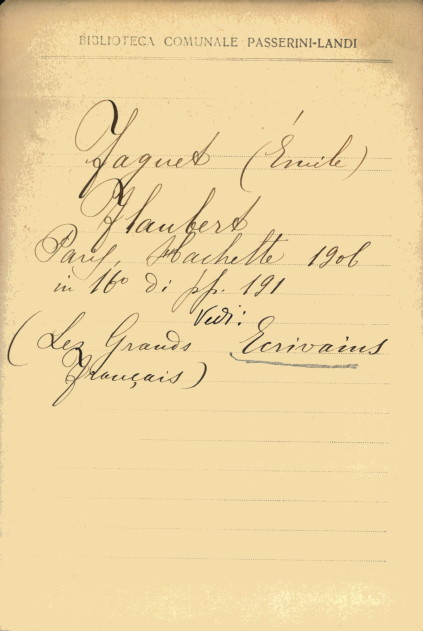 BIBLIOTECA COMUNALE PASSERINI-LANDI
Faguet (Émile)
Flaubert
Paris, Hachette 1906
in 16º di pp. 191
Vedi:
(Les Grands Ecrivains
Français)